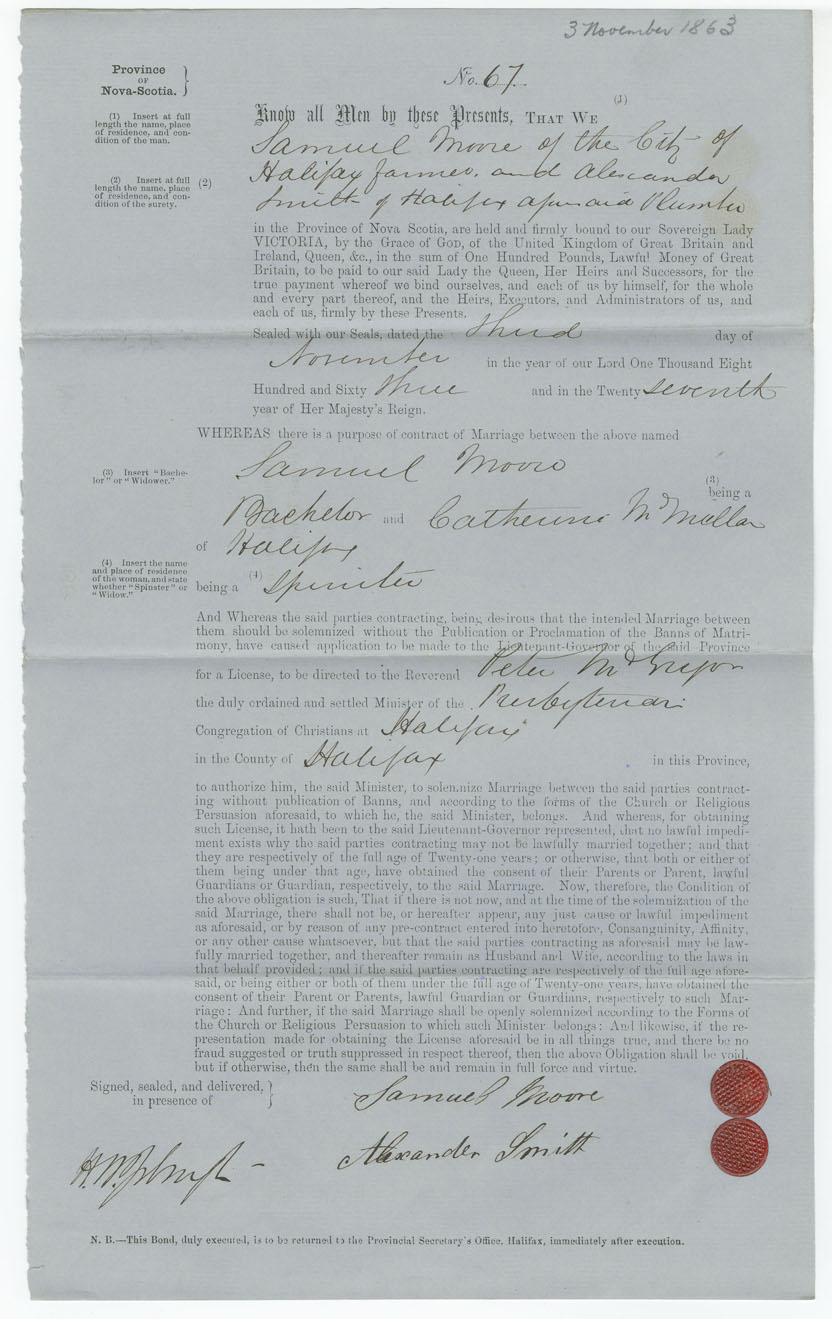 3 November 1863
Province
OF
Nova-Scotia.
No. 67.
(1) Insert at full
length the name, place
of residence, and con-
dition of the man.
(1)
Know all Men by these Presents, THAT WE
Samuel Moore of the City of
(2) Insert at full
length the name, place
of residence, and con-
dition of the surety.
(2)
Halifax farmer, and Alexander
Smith of Halifax aforesaid Plumber
in the Province of Nova Scotia, are held and firmly bound to our Sovereign Lady
VICTORIA, by the Grace of GOD, of the United Kingdom of Great Britain and
Ireland, Queen, &c., in the sum of One Hundred Pounds, Lawful Money of Great
Britain, to be paid to our said Lady the Queen, Her Heirs and Successors, for the
true payment whereof we bind ourselves, and each of us by himself, for the whole
and every part thereof, and the Heirs, Executors, and Administrators of us, and
each of us, firmly by these Presents.
Sealed with our Seals, dated the Third day of
November in the year of our Lord One Thousand Eight
Hundred and Sixty three and in the Twenty seventh
year of Her Majesty's Reign.
WHEREAS there is a purpose of contract of Marriage between the above named
(3) Insert "Bache-
lor" or "Widower."
Samuel Moore
(3)
being a
Bachelor and Catherine McMullan
of Halifax
(4) Insert the name
and place of residence
of the woman, and state
whether "Spinster" or
"Widow."
being a (4) Spinster
And Whereas the said parties contracting, being desirous that the intended Marriage between
them should be solemnized without the Publication or Proclamation of the Banns of Matri-
mony, have caused application to be made to the Lieutenant-Governor of the said Province
for a License, to be directed to the Reverend Peter McGregor
the duly ordained and settled Minister of the Presbyterian
Congregation of Christians at Halifax
in the County of Halifax in this Province,
to authorize him, the said Minister, to solemnize Marriage between the said parties contract-
ing without publication of Banns, and according to the forms of the Church or Religious
Persuasion aforesaid, to which he, the said Minister, belongs. And whereas, for obtaining
such License, it hath been to the said Lieutenant-Governor represented, that no lawful impedi-
ment exists why the said parties contracting may not be lawfully married together; and that
they are respectively of the full age of Twenty-one years; or otherwise, that both or either of
them being under that age, have obtained the consent of their Parents or Parent, lawful
Guardians or Guardian, respectively, to the said Marriage. Now, therefore, the Condition of
the above obligation is such, That if there is not now, and at the time of the solemnization of the
said Marriage, there shall not be, or hereafter appear, any just cause or lawful impediment
as aforesaid, or by reason of any pre-contract entered into heretofore, Consanguinity, Affinity,
or any other cause whatsoever, but that the said parties contracting as aforesaid may be law-
fully married together, and thereafter remain as Husband and Wife, according to the laws in
that behalf provided; and if the said parties contracting are respectively of the full age afore-
said, or being either or both of them under the full age of Twenty-one years, have obtained the
consent of their Parent or Parents, lawful Guardian or Guardians, respectively to such Mar-
riage: And further, if the said Marriage shall be openly solemnized according to the Forms of
the Church or Religious Persuasion to which such Minister belongs: And likewise, if the re-
presentation made for obtaining the License aforesaid be in all things true, and there be no
fraud suggested or truth suppressed in respect thereof, then the above Obligation shall be void,
but if otherwise, then the same shall be and remain in full force and virtue.
Signed, sealed, and delivered,
in presence of
Samuel Moore
Alexander Smith
N. B.—This Bond, duly executed, is to be returned to the Provincial Secretary's Office, Halifax, immediately after execution.